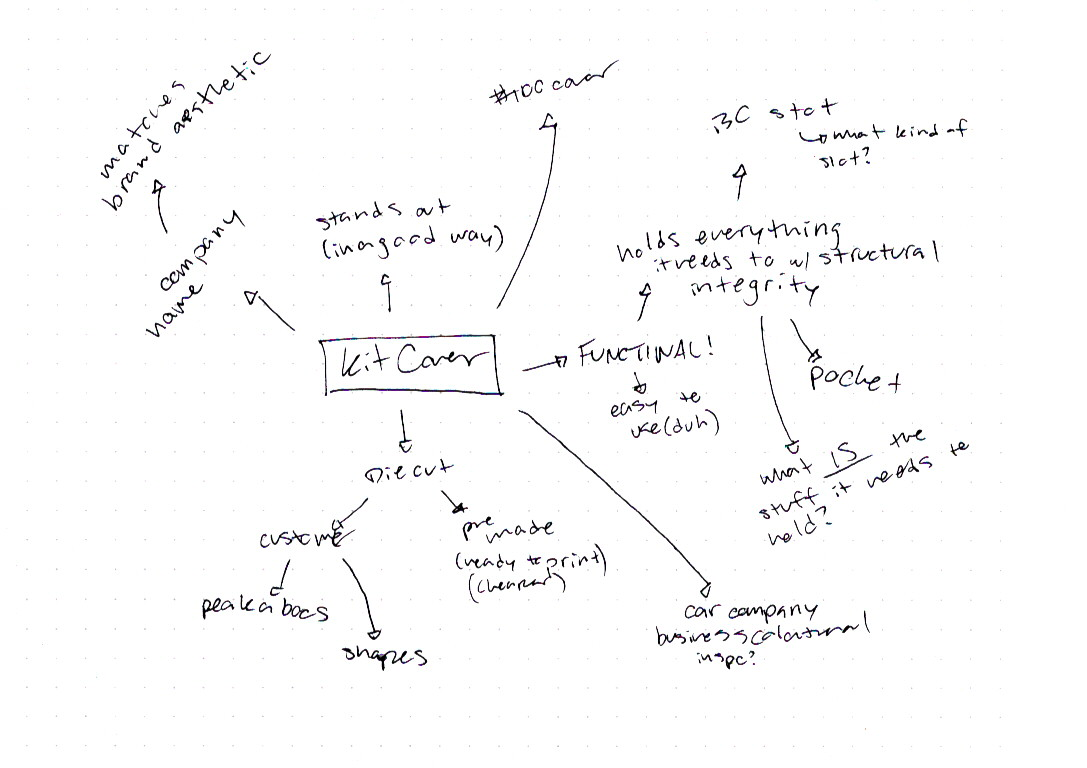 matches
brand aesthetic
company
name
stands out
(in a good way)
#100 cover
BC slot
what kind of
slot?
holds everything
it needs to w/ structural
integrity
Kit Cover
FUNCTINAL!
easy to
use (duh)
Pocket
what IS the
stuff it needs to
hold?
Die cut
custom
pre made
(ready to print)
(cheaper)
peak a boos
shapes
car company
business
inspo?